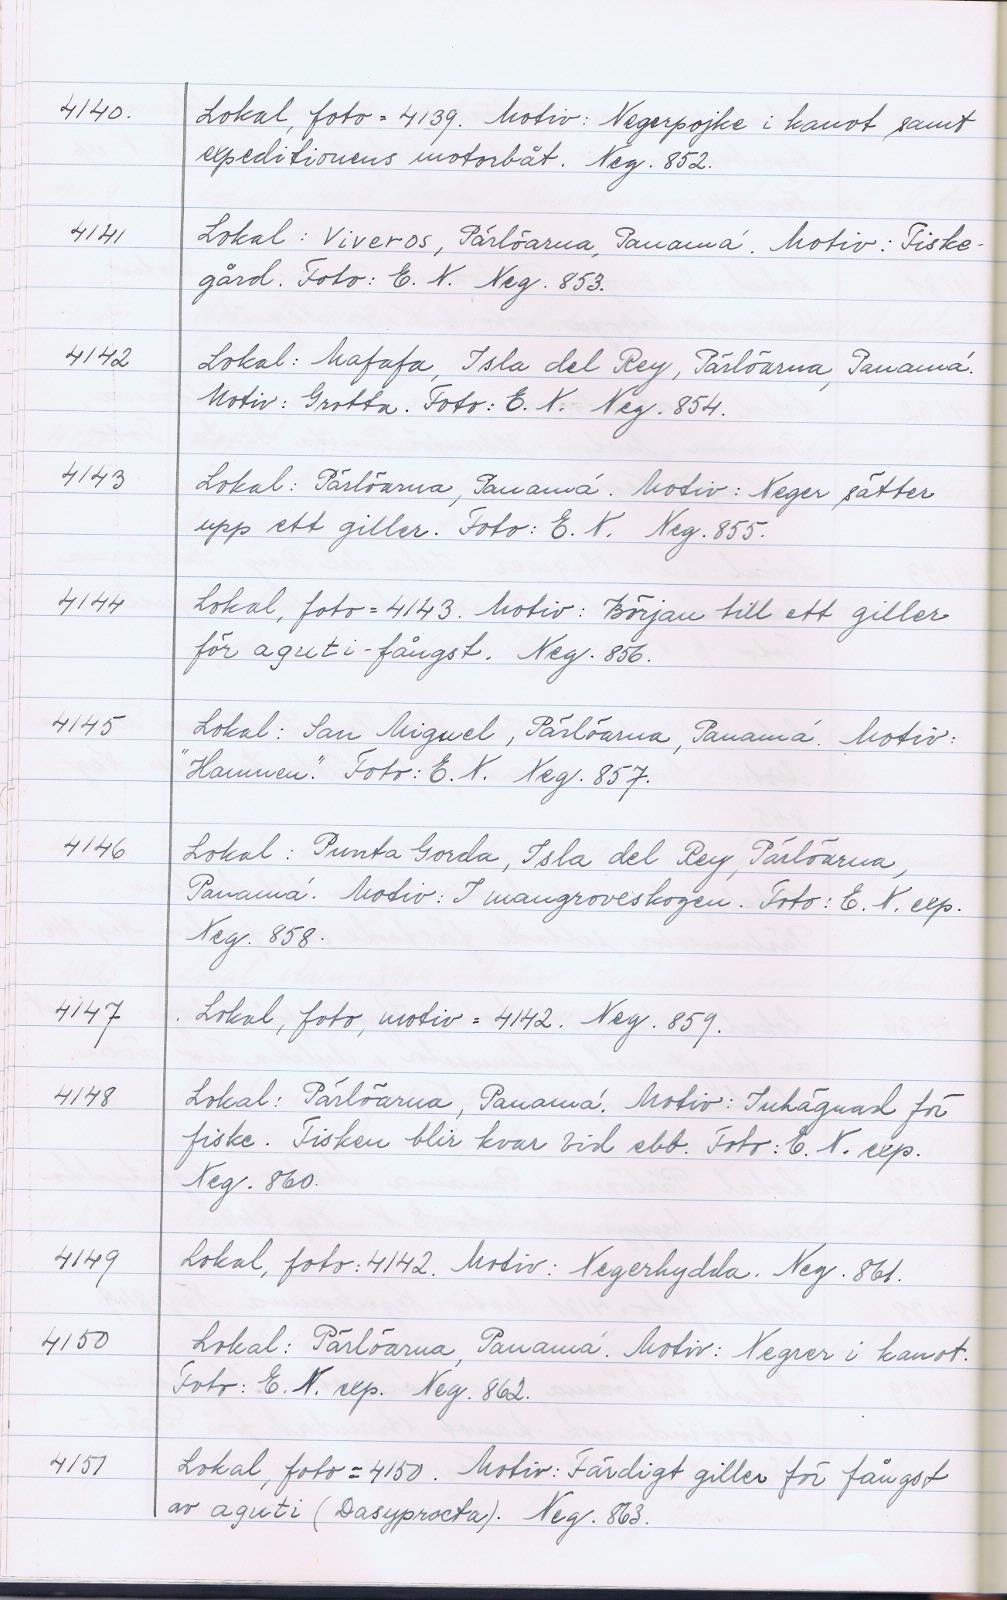 4140. Lokal, foto = 4139. Motiv: Negerpojke i kanot samt
expeditionens motorbåt. Neg. 852.
4141 Lokal: Viveros, Pärlöarna, Panamá. Motiv: Fiske-
gård. Foto: E. N. Neg. 853.
4142 Lokal: Mafafa, Isla del Rey, Pärlöarna, Panamá.
Motiv: Grotta. Foto: E. N. Neg. 854.
4143 Lokal: Pärlöarna, Panamá. Motiv: Neger sätter
upp ett giller. Foto: E. N. Neg. 855.
4144 Lokal, foto = 4143. Motiv: Början till ett giller
för aguti-fångst. Neg. 856.
4145 Lokal: San Miguel, Pärlöarna, Panamá. Motiv:
"Hamnen". Foto: E. N. Neg. 857.
4146 Lokal: Punta Gorda, Isla del Rey, Pärlöarna,
Panamá. Motiv: I mangroveskogen. Foto: E. N. exp.
Neg. 858.
4147 Lokal, foto, motiv = 4142. Neg. 859.
4148 Lokal: Pärlöarna, Panamá. Motiv: Inhägnad för
fiske. Fisken blir kvar vid ebb. Foto: E. N. exp.
Neg. 860.
4149 Lokal, foto: 4142. Motiv: Negerhydda. Neg. 861.
4150 Lokal: Pärlöarna, Panamá. Motiv: Negrer i kanot.
Foto: E. N. exp. Neg. 862.
4151 Lokal, foto = 4150. Motiv: Färdigt giller för fångst
av aguti (Dasyprocta). Neg. 863.